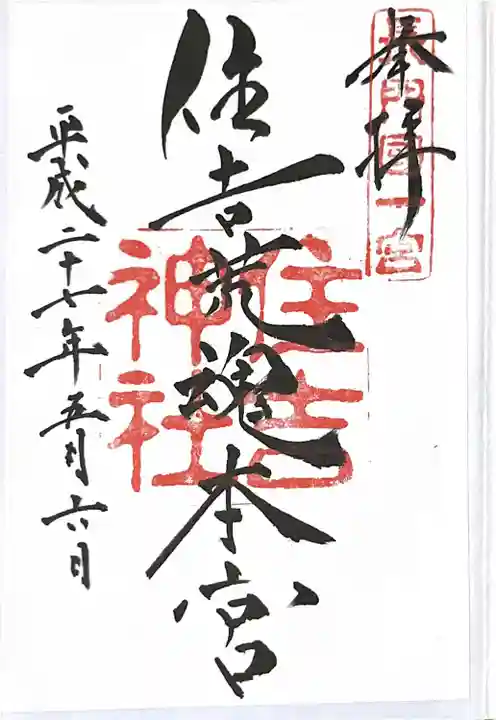 奉拝
長門國一宮
住吉荒魂本宮
住吉神社
平成二十七年五月六日